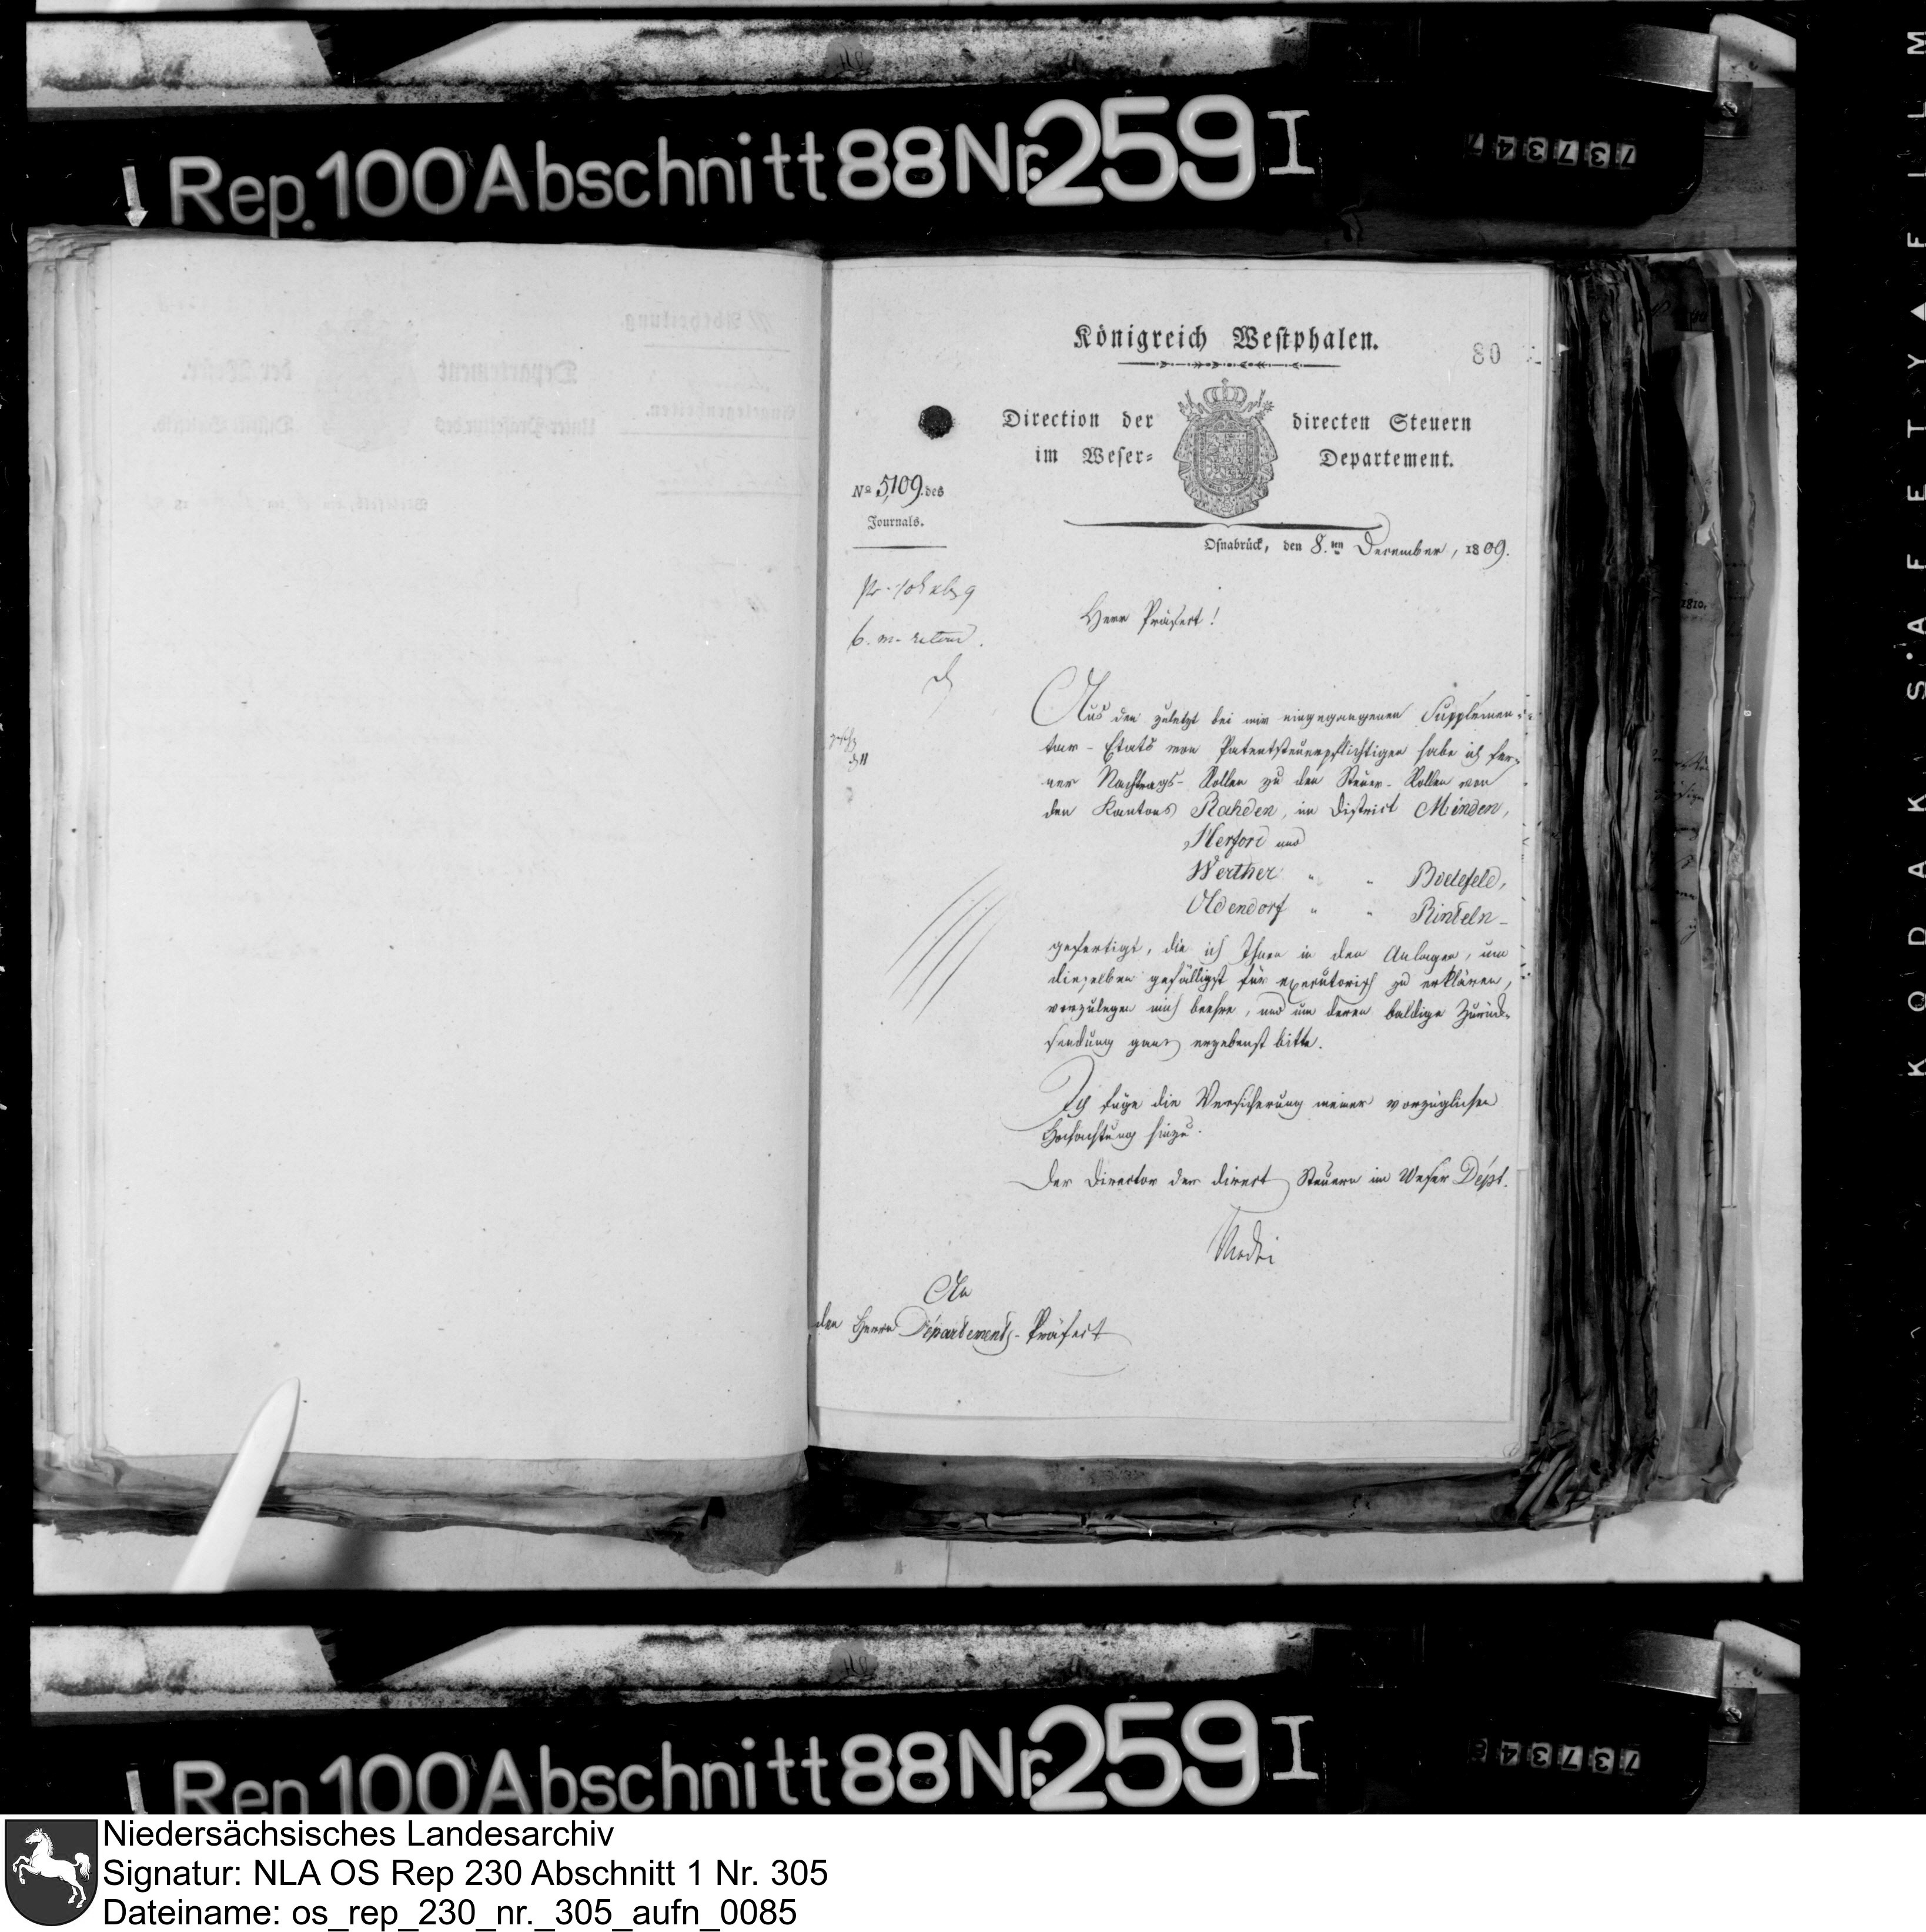 Rep. 100 Abschnitt 88 Nr. 259 I
Königreich Westphalen.
80
Direction der directen Steuern
im Weser- Departement.
No 5109. des
Journals.
Osnabrück, den 8.ten December, 1809.
Herr Präfect!
Aus den zuletzt bei mir eingegangenen Supplemen-
tar-Etats von Patentsteuerpflichtigen habe ich fer-
ner Nachtrags-Rollen zu den Steuer-Rollen von
den Kantons Rahden, im District Minden,
Herford und
Werther " " Bielefeld,
Oldendorf " " Rinteln-
gefertigt, die ich Ihnen in den Anlagen, um
dieselben gefälligst für executorisch zu erklären,
vorzulegen mich beehre, und um deren baldige Zurück-
sendung ganz ergebenst bitte.
Ich füge die Versicherung meiner vorzüglichen
Hochachtung hinzu.
Der Director der direct Steuern im Weser Dépt.
An
den Herrn Departements-Präfect
Rep 100 Abschnitt 88 Nr. 259 I
KODAK SAFETY FILM
Niedersächsisches Landesarchiv
Signatur: NLA OS Rep 230 Abschnitt 1 Nr. 305
Dateiname: os_rep_230_nr._305_aufn_0085